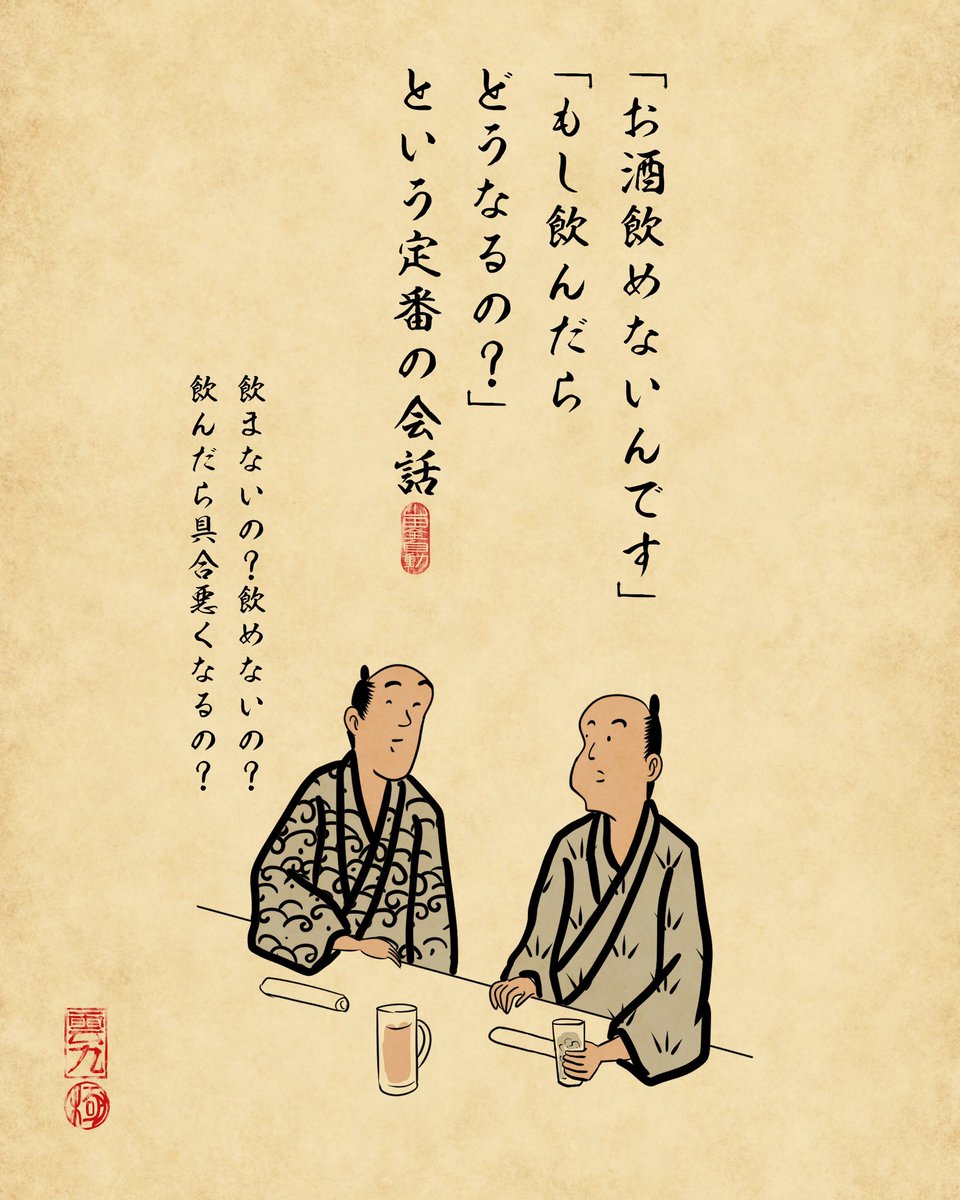 「お酒飲めないんです」
「もし飲んだら
どうなるの?」
という定番の会話
飲まないの?飲めないの?
飲んだら具合悪くなるの?